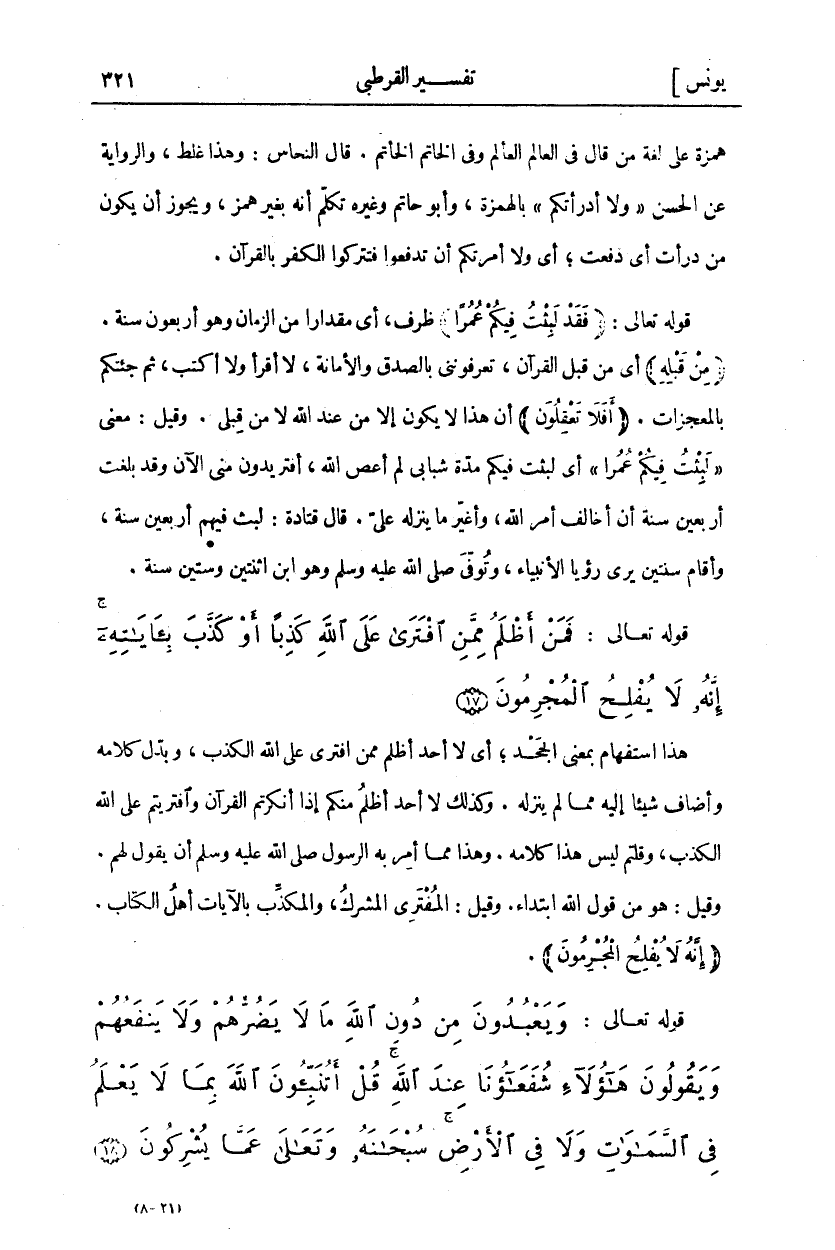 يونس ] تفسير القرطبى ٣٢١
همزة على لغة من قال فى العالم العألم وفى الخاتم الخأتم . قال النحاس : وهذا غلط ، والرواية
عن الحسن « ولا أدرأتكم » بالهمزة ، وأبو حاتم وغيره تكلّم أنه بغير همز ، ويجوز أن يكون
من درأت أى دفعت ؛ أى ولا أمرتكم أن تدفعوا فتتركوا الكفر بالقرآن .
قوله تعالى : ﴿ فَقَدْ لَبِثْتُ فِيكُمْ عُمُرًا ﴾ ظرف، أى مقدارا من الزمان وهو أربعون سنة .
﴿ مِنْ قَبْلِهِ ﴾ أى من قبل القرآن ، تعرفوننى بالصدق والأمانة ، لا أقرأ ولا أكتب، ثم جئتكم
بالمعجزات . ﴿ أَفَلَا تَعْقِلُون ﴾ أن هذا لا يكون إلا من عند الله لا من قِبلى . وقيل : معنى
« لَبِثْتُ فِيكُمْ عُمُرا » أى لبثت فيكم مدّة شبابى لم أعص الله ، أفتريدون منى الآن وقد بلغت
أربعين سنة أن أخالف أمر الله، وأغيّر ما ينزله علىّ . قال قتادة : لبث فيهم أربعين سنة ،
وأقام سنتين يرى رؤيا الأنبياء ، وتُوفّى صلى الله عليه وسلم وهو ابن اثنتين وستين سنة .
قوله تعـالى : فَمَنْ أَظْلَمُ مِمَّنِ ٱفْتَرَىٰ عَلَى ٱللَّهِ كَذِبًا أَوْ كَذَّبَ بِـَٔايَـٰتِهِۦٓ ۚ
إِنَّهُۥ لَا يُفْلِحُ ٱلْمُجْرِمُونَ ﴿١٧﴾
هذا استفهام بمعنى الجَحْد ؛ أى لا أحد أظلم ممن افترى على الله الكذب ، وبدّل كلامه
وأضاف شيئا إليه مما لم ينزله . وكذلك لا أحد أظلمُ منكم إذا أنكرتم القرآن وٱفتريتم على الله
الكذب، وقلتم ليس هذا كلامه . وهذا مما أُمِر به الرسول صلى الله عليه وسلم أن يقول لهم .
وقيل : هو من قول الله ابتداء. وقيل : المُفْتَرِى المشركُ، والمكذِّب بالآيات أهلُ الكتاب .
﴿ إِنَّهُ لَا يُفْلِحُ الْمُجْرِمُونَ ﴾ .
قوله تعـالى : وَيَعْبُدُونَ مِن دُونِ ٱللَّهِ مَا لَا يَضُرُّهُمْ وَلَا يَنفَعُهُمْ
وَيَقُولُونَ هَـٰٓؤُلَآءِ شُفَعَـٰٓؤُنَا عِندَ ٱللَّهِ ۚ قُلْ أَتُنَبِّـُٔونَ ٱللَّهَ بِمَا لَا يَعْلَمُ
فِى ٱلسَّمَـٰوَٰتِ وَلَا فِى ٱلْأَرْضِ ۚ سُبْحَـٰنَهُۥ وَتَعَـٰلَىٰ عَمَّا يُشْرِكُونَ ﴿١٨﴾
(٢١-٨)